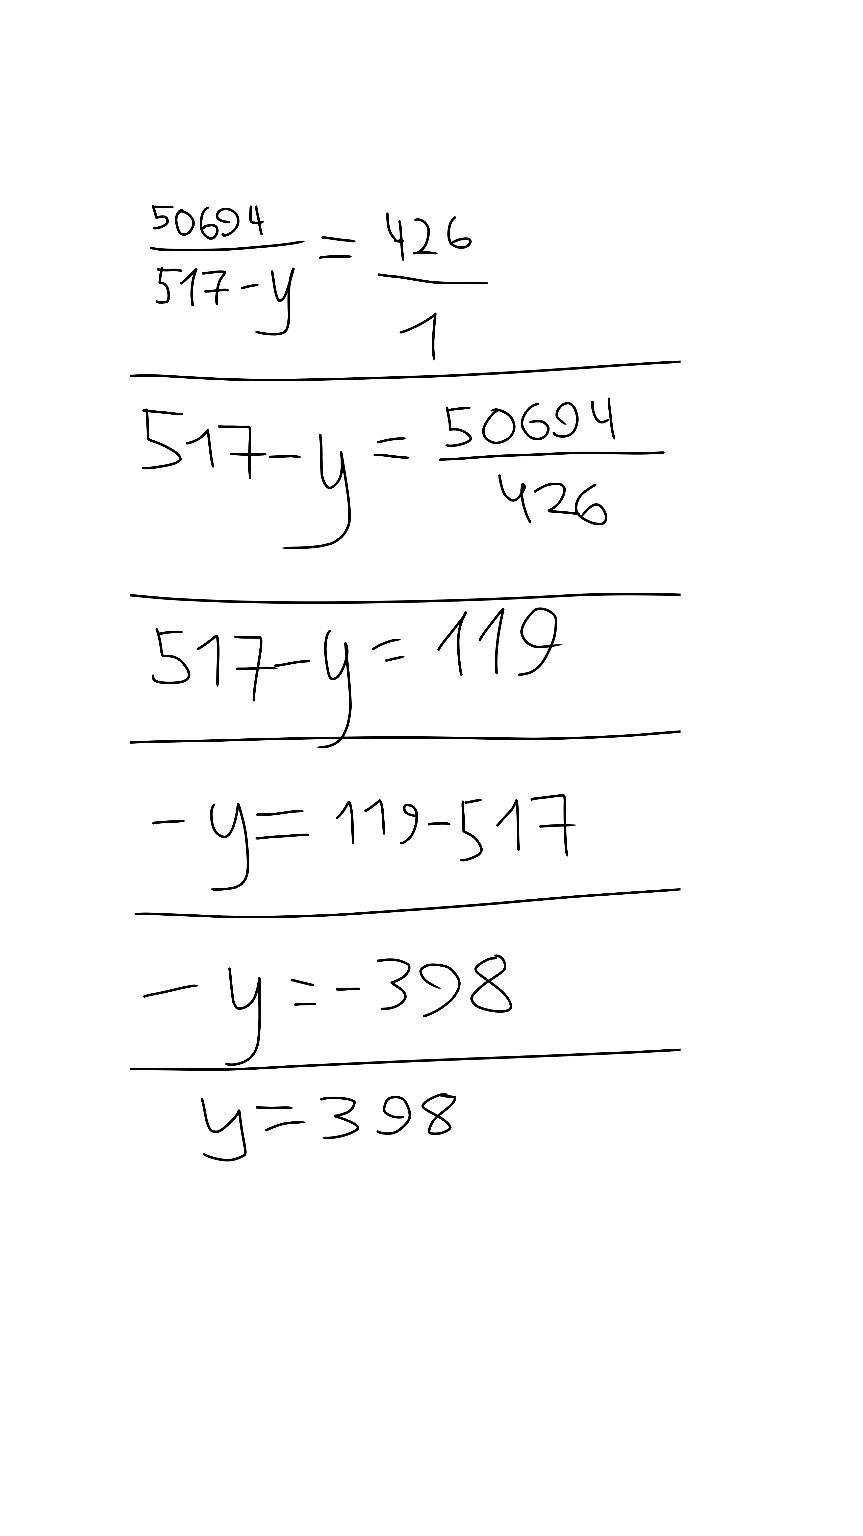 50694/517-y = 426/1
517-y = 50694/426
517-y = 119
-y = 119-517
-y = -398
y = 398